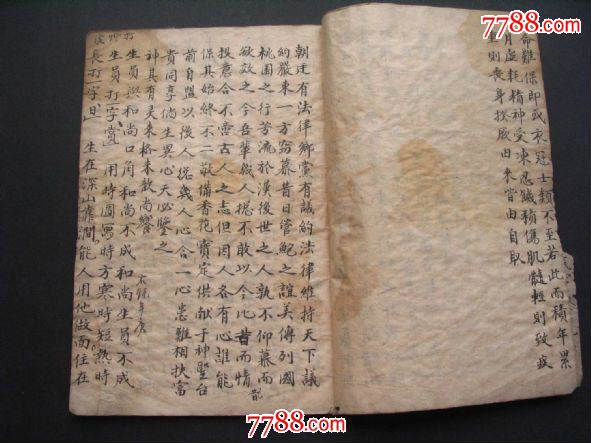 7788.com
命难保即或衣冠士類不至若此而積年累
月虚耗精神受凍忍餓精傷肌髓輕則致疾
重則丧身揆厥由来皆由自取
朝廷有法律鄉黨有議約法律維持天下議
約嚴束一方窃慕昔日管鮑之誼美傳列國
桃園之行芳流於漢後世之人孰不仰慕而
欲效之今吾輩幾人摁不敢以今比昔而情
投意合不啻古人之志但因人各有心誰能
保其始終不二敬備香花寳定供献于神聖台
前自盟以後人從幾人心合一心患难相扶富
貴同享倘生異心天必鑒之
神其有灵来格来歆尚饗
生員與和尚口角和尚不成和尚生員不成
生員打字意 用時圓寫時方寒時短熱時
長打一字日 生在深山 澗能人用他故而住在
7788.com